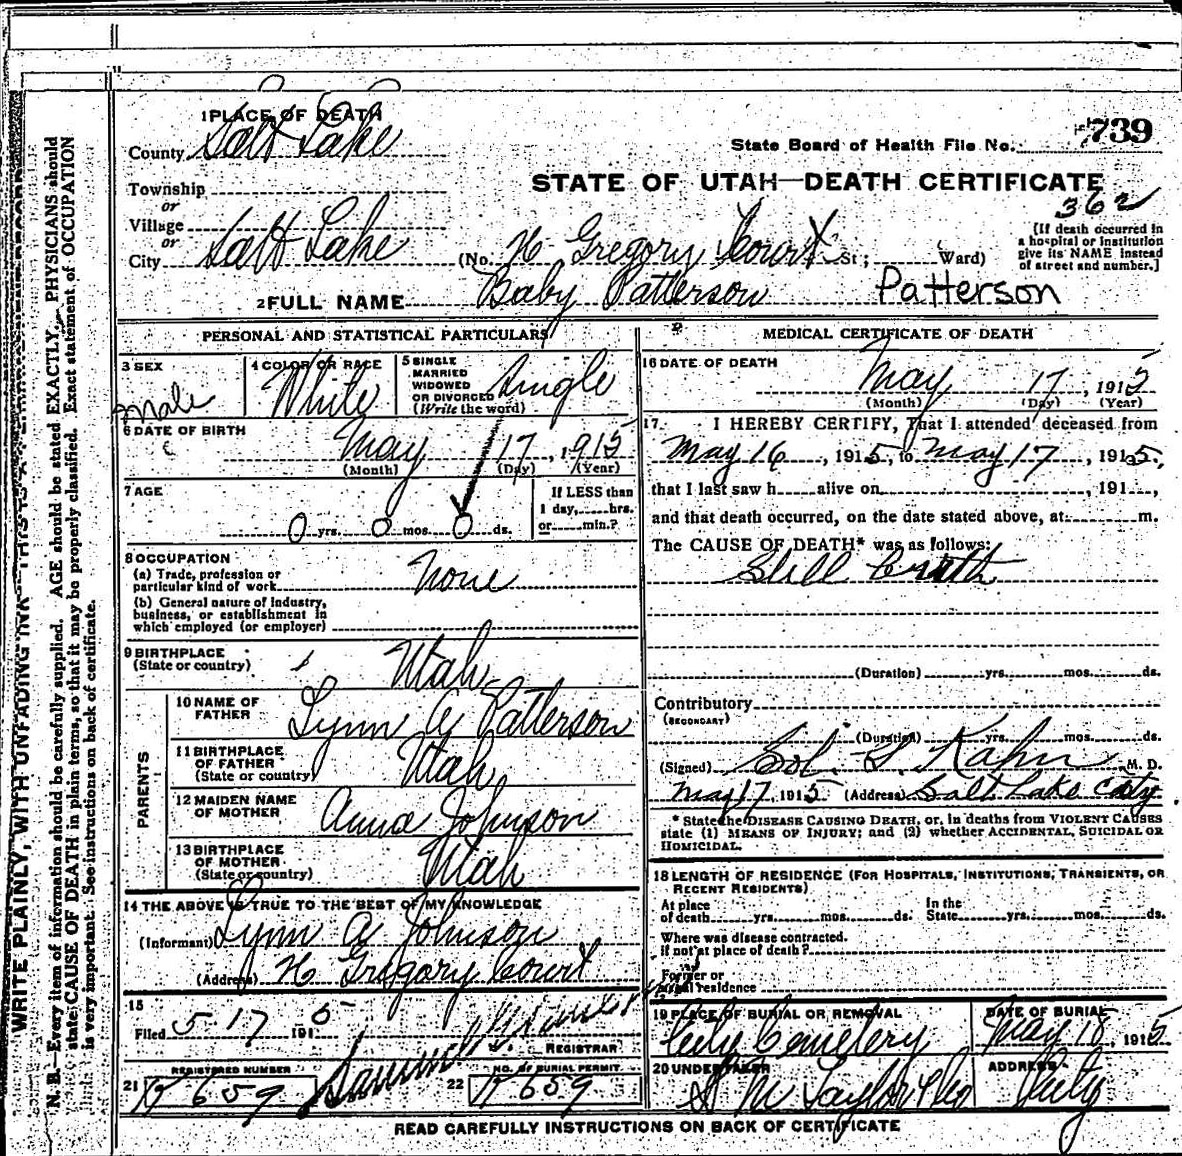 1 PLACE OF DEATH
County Salt Lake
State Board of Health File No. 739
STATE OF UTAH—DEATH CERTIFICATE
Township
or
Village
or
362
City Salt Lake (No. Gregory Court St; Ward)
[If death occurred in
a hospital or institution
give its NAME instead
of street and number.]
2 FULL NAME Baby Patterson Patterson
PERSONAL AND STATISTICAL PARTICULARS
3 SEX
Male
4 COLOR OR RACE
White
5 SINGLE
MARRIED
WIDOWED
OR DIVORCED
(Write the word)
Single
6 DATE OF BIRTH
May 17, 1915
(Month) (Day) (Year)
7 AGE
0 yrs. 0 mos. 0 ds.
If LESS than
1 day, hrs.
or min.?
8 OCCUPATION
(a) Trade, profession or
particular kind of work
None
(b) General nature of industry,
business, or establishment in
which employed (or employer)
9 BIRTHPLACE
(State or country)
Utah
PARENTS
10 NAME OF
FATHER
Lynn A Patterson
11 BIRTHPLACE
OF FATHER
(State or country)
Utah
12 MAIDEN NAME
OF MOTHER
Anna Johnson
13 BIRTHPLACE
OF MOTHER
(State or country)
Utah
14 THE ABOVE IS TRUE TO THE BEST OF MY KNOWLEDGE
(Informant) Lynn A Johnson
(Address) Gregory Court
15
Filed 5-17 1915
REGISTRAR
REGISTERED NUMBER
21 659
NO. OF BURIAL PERMIT
22 659
MEDICAL CERTIFICATE OF DEATH
16 DATE OF DEATH
May 17, 1915
(Month) (Day) (Year)
17. I HEREBY CERTIFY, That I attended deceased from
May 16, 1915, to May 17, 1915,
that I last saw h alive on , 191 ,
and that death occurred, on the date stated above, at m.
The CAUSE OF DEATH* was as follows:
Still birth
(Duration) yrs. mos. ds.
Contributory
(SECONDARY)
(Duration) yrs. mos. ds.
(Signed) Sol. G. Kahn M. D.
May 17 1915 (Address) Salt Lake City
* State the DISEASE CAUSING DEATH, or, in deaths from VIOLENT CAUSES
state (1) MEANS OF INJURY; and (2) whether ACCIDENTAL, SUICIDAL OR
HOMICIDAL.
18 LENGTH OF RESIDENCE (FOR HOSPITALS, INSTITUTIONS, TRANSIENTS, OR
RECENT RESIDENTS)
At place
of death yrs. mos. ds.
In the
State yrs. mos. ds.
Where was disease contracted.
if not at place of death?
Former or
usual residence
19 PLACE OF BURIAL OR REMOVAL
City Cemetery
DATE OF BURIAL
May 18, 1915
20 UNDERTAKER
S M Taylor & Co
ADDRESS
City
READ CAREFULLY INSTRUCTIONS ON BACK OF CERTIFICATE
WRITE PLAINLY, WITH UNFADING INK
N. B.—Every item of information should be carefully supplied. AGE should be stated EXACTLY. PHYSICIANS should
state CAUSE OF DEATH in plain terms, so that it may be properly classified. Exact statement of OCCUPATION
is very important. See instructions on back of certificate.